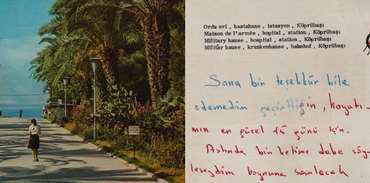 Ordu evi, hastahane, istasyon, Köprübaşı
Maison de l'armée, hopital, station, Köprübaşı
Military house, hospital, station, Köprübaşı
Militär house, krankenhause, bahnof, Köprübaşı
Sana bir teşekkür bile
edemedim geçirdiğin, hayatı-
mın en güzel 15 günü için.
Aslında bir kelime daha söy-
leseydim boynuna sarılacak